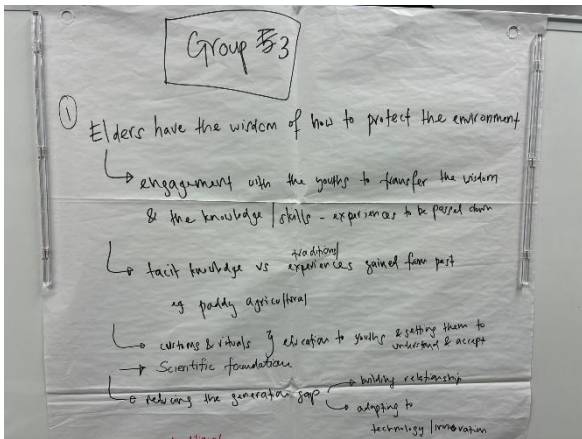 Group 3
① Elders have the wisdom of how to protect the environment
↳ engagement with the youths to transfer the wisdom
& the knowledge / skills - experiences to be passed down
↳ tacit knowledge vs traditional / experiences gained from past
eg paddy agricultural
↳ customs & rituals } education to youths & getting them to understand & accept
→ Scientific foundation
↳ reducing the generation gap → building relationship
↳ adapting to
technology / innovation